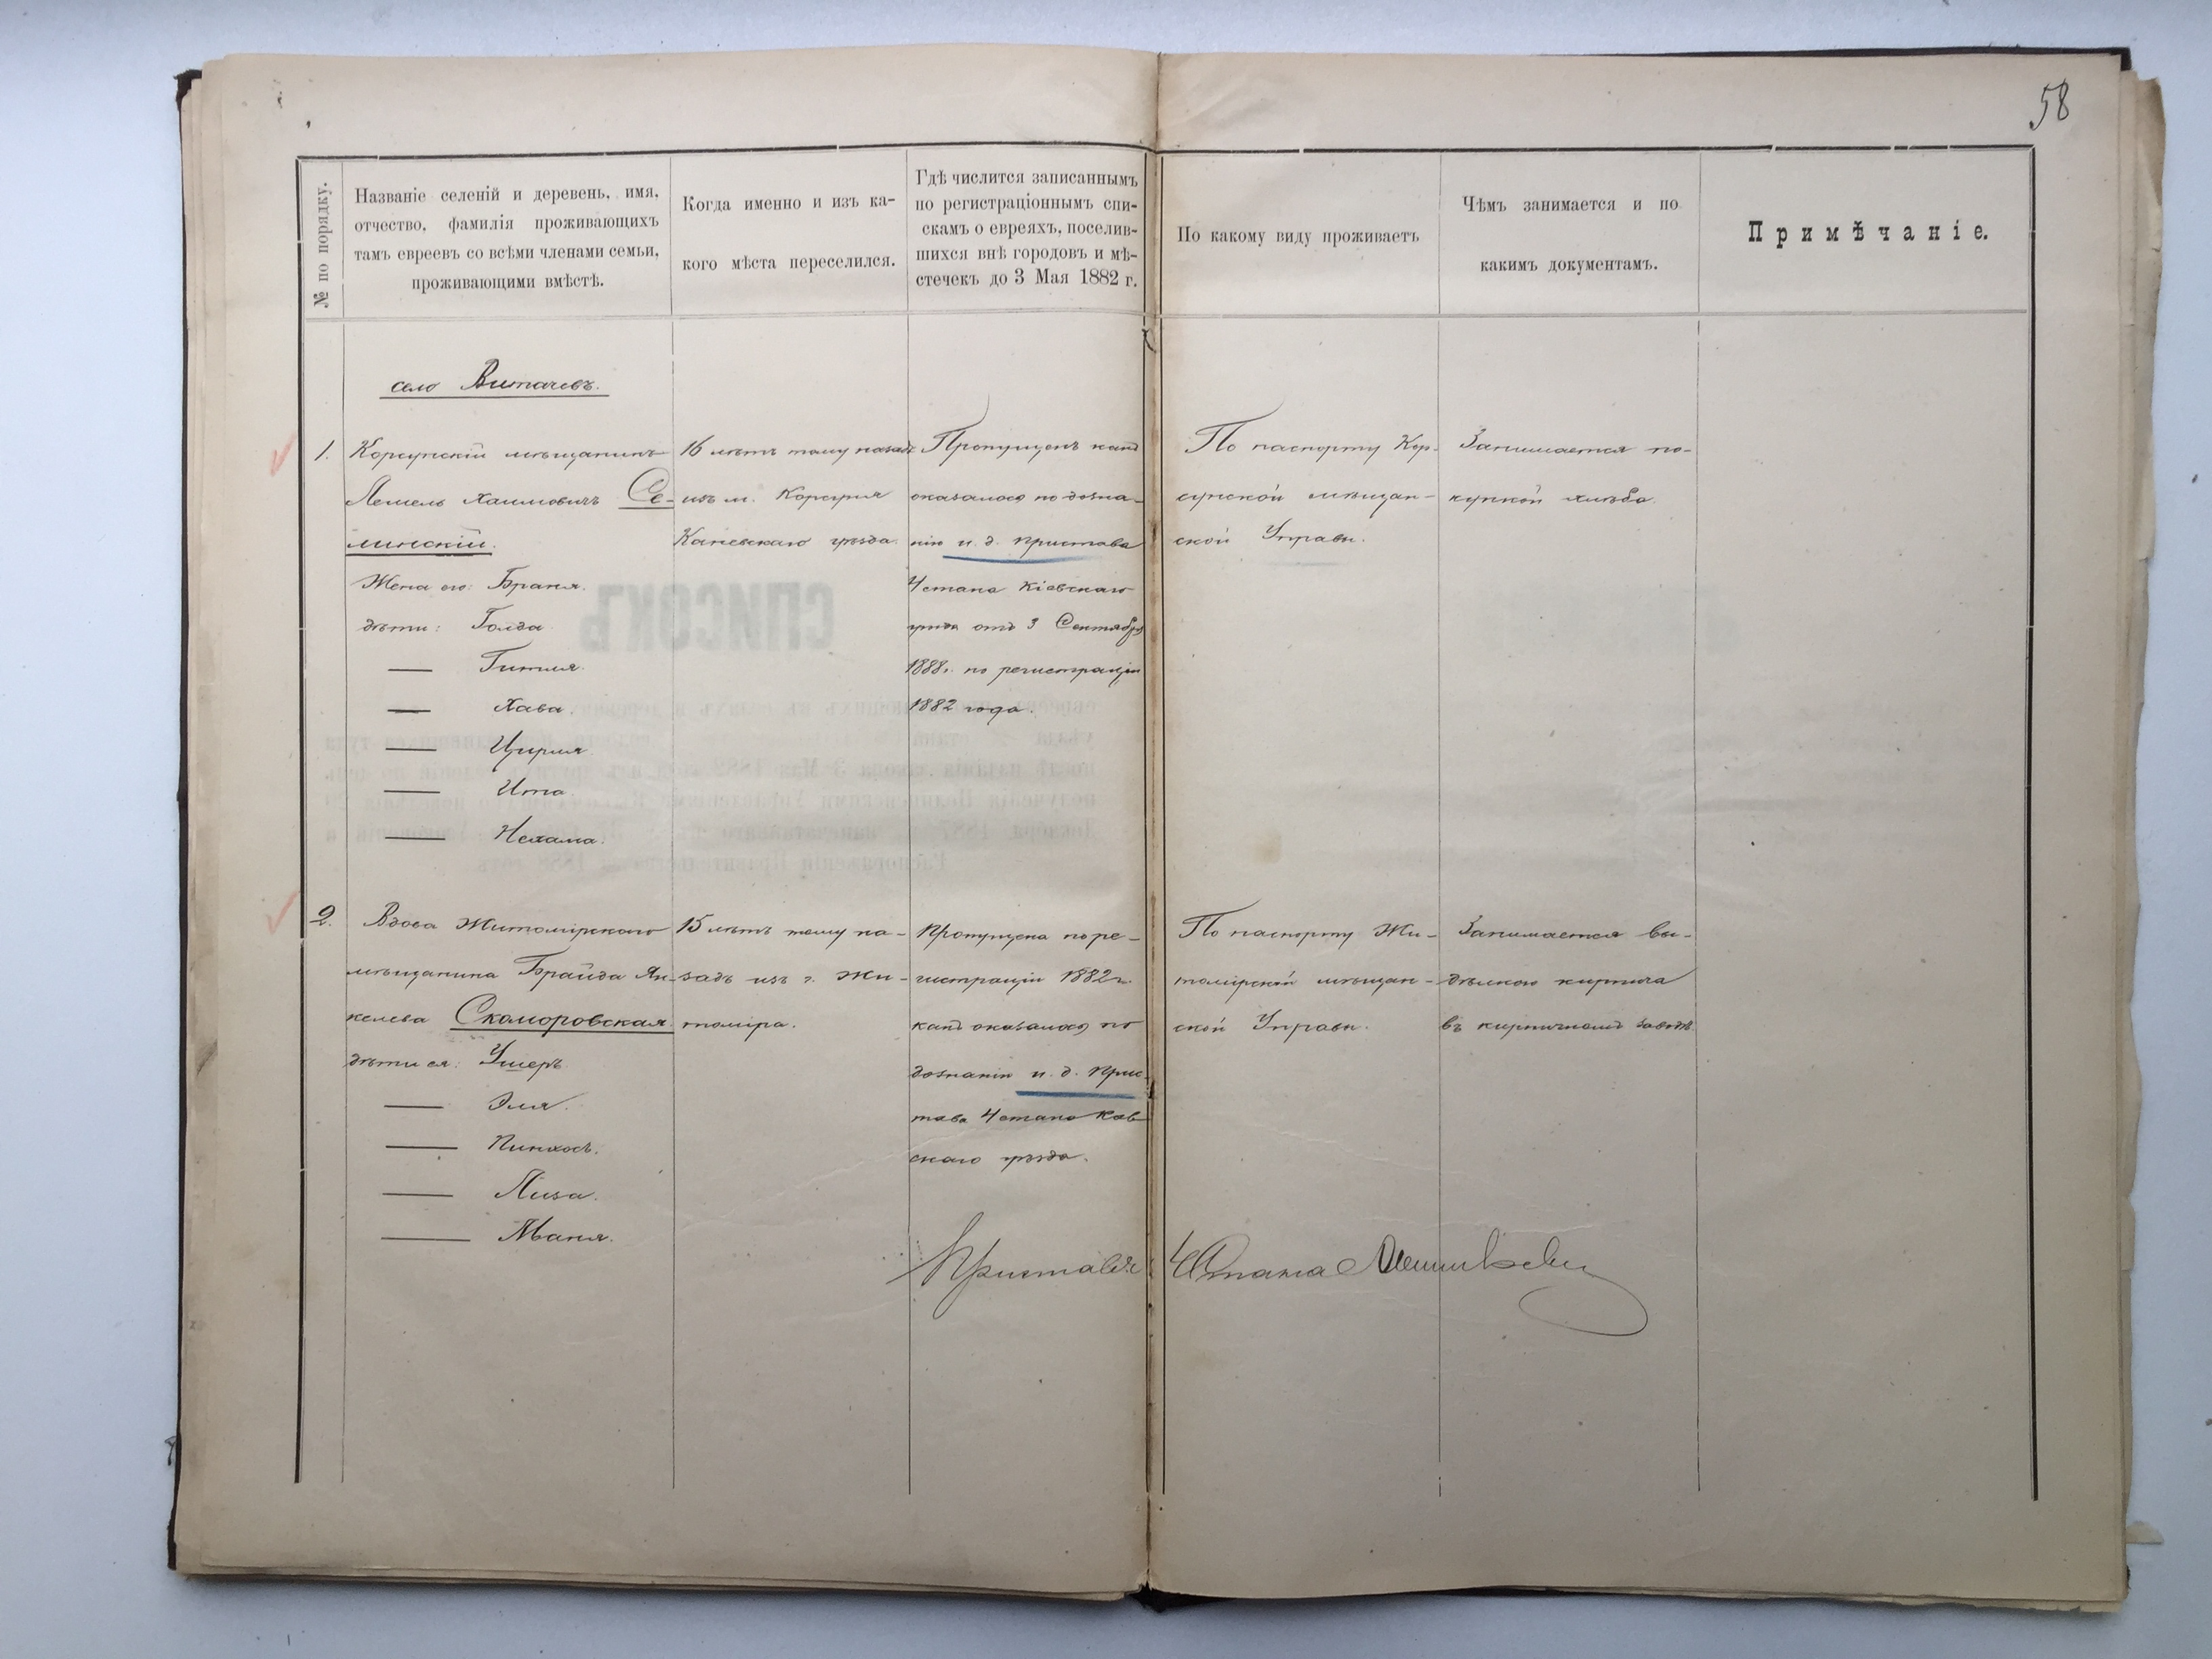 58
№ по порядку.
Названіе селеній и деревень, имя,
отчество, фамилія проживающихъ
тамъ евреевъ со всѣми членами семьи,
проживающими вмѣстѣ.
Когда именно и изъ ка-
кого мѣста переселился.
Гдѣ числится записаннымъ
по регистраціоннымъ спи-
скамъ о евреяхъ, поселив-
шихся внѣ городовъ и мѣ-
стечекъ до 3 Мая 1882 г.
По какому виду проживаетъ
Чѣмъ занимается и по
какимъ документамъ.
Примѣчаніе.
село Витачевъ.
1.
Корсунскій мѣщанинъ
Лемель Хаимовичъ Се-
линскій.
Жена его: Браня.
дѣти: Голда
— Гитля.
— Хава.
— Цирля
— Ита.
— Нехама.
16 лѣтъ тому назадъ
изъ м. Корсуня
Каневскаго уѣзда
Пропущенъ какъ
оказалось по дозна-
нію и. д. пристава
4 стана Кіевскаго
уѣзда отъ 3 Сентября
1888 г. по регистраціи
1882 года.
По паспорту Кор-
сунской мѣщан-
ской Управы.
Занимается по-
купкой хлѣба.
2.
Вдова Житомірскаго
мѣщанина Брайда Ян-
келева Скоморовская
дѣти ея: Ушеръ
— Эля.
— Пинхосъ.
— Лиза.
— Маня.
15 лѣтъ тому на-
задъ изъ г. Жи-
томіра.
Пропущена по ре-
гистраціи 1882 г.
какъ оказалось по
дознанію и. д. Прис-
тава 4 стана Кіев
скаго уѣзда.
По паспорту Жи-
томірской мѣщан-
ской Управы.
Занимается вы-
дѣлкою кирпича
въ кирпичномъ заводѣ.
Приставъ 4 Стана